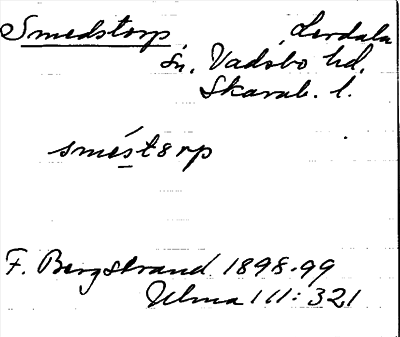 Smedstorp, Lerdala
sn, Vadsbo hd,
Skarab. l.
sméstorp
F. Bergstrand 1898-99
Ulma 111:321